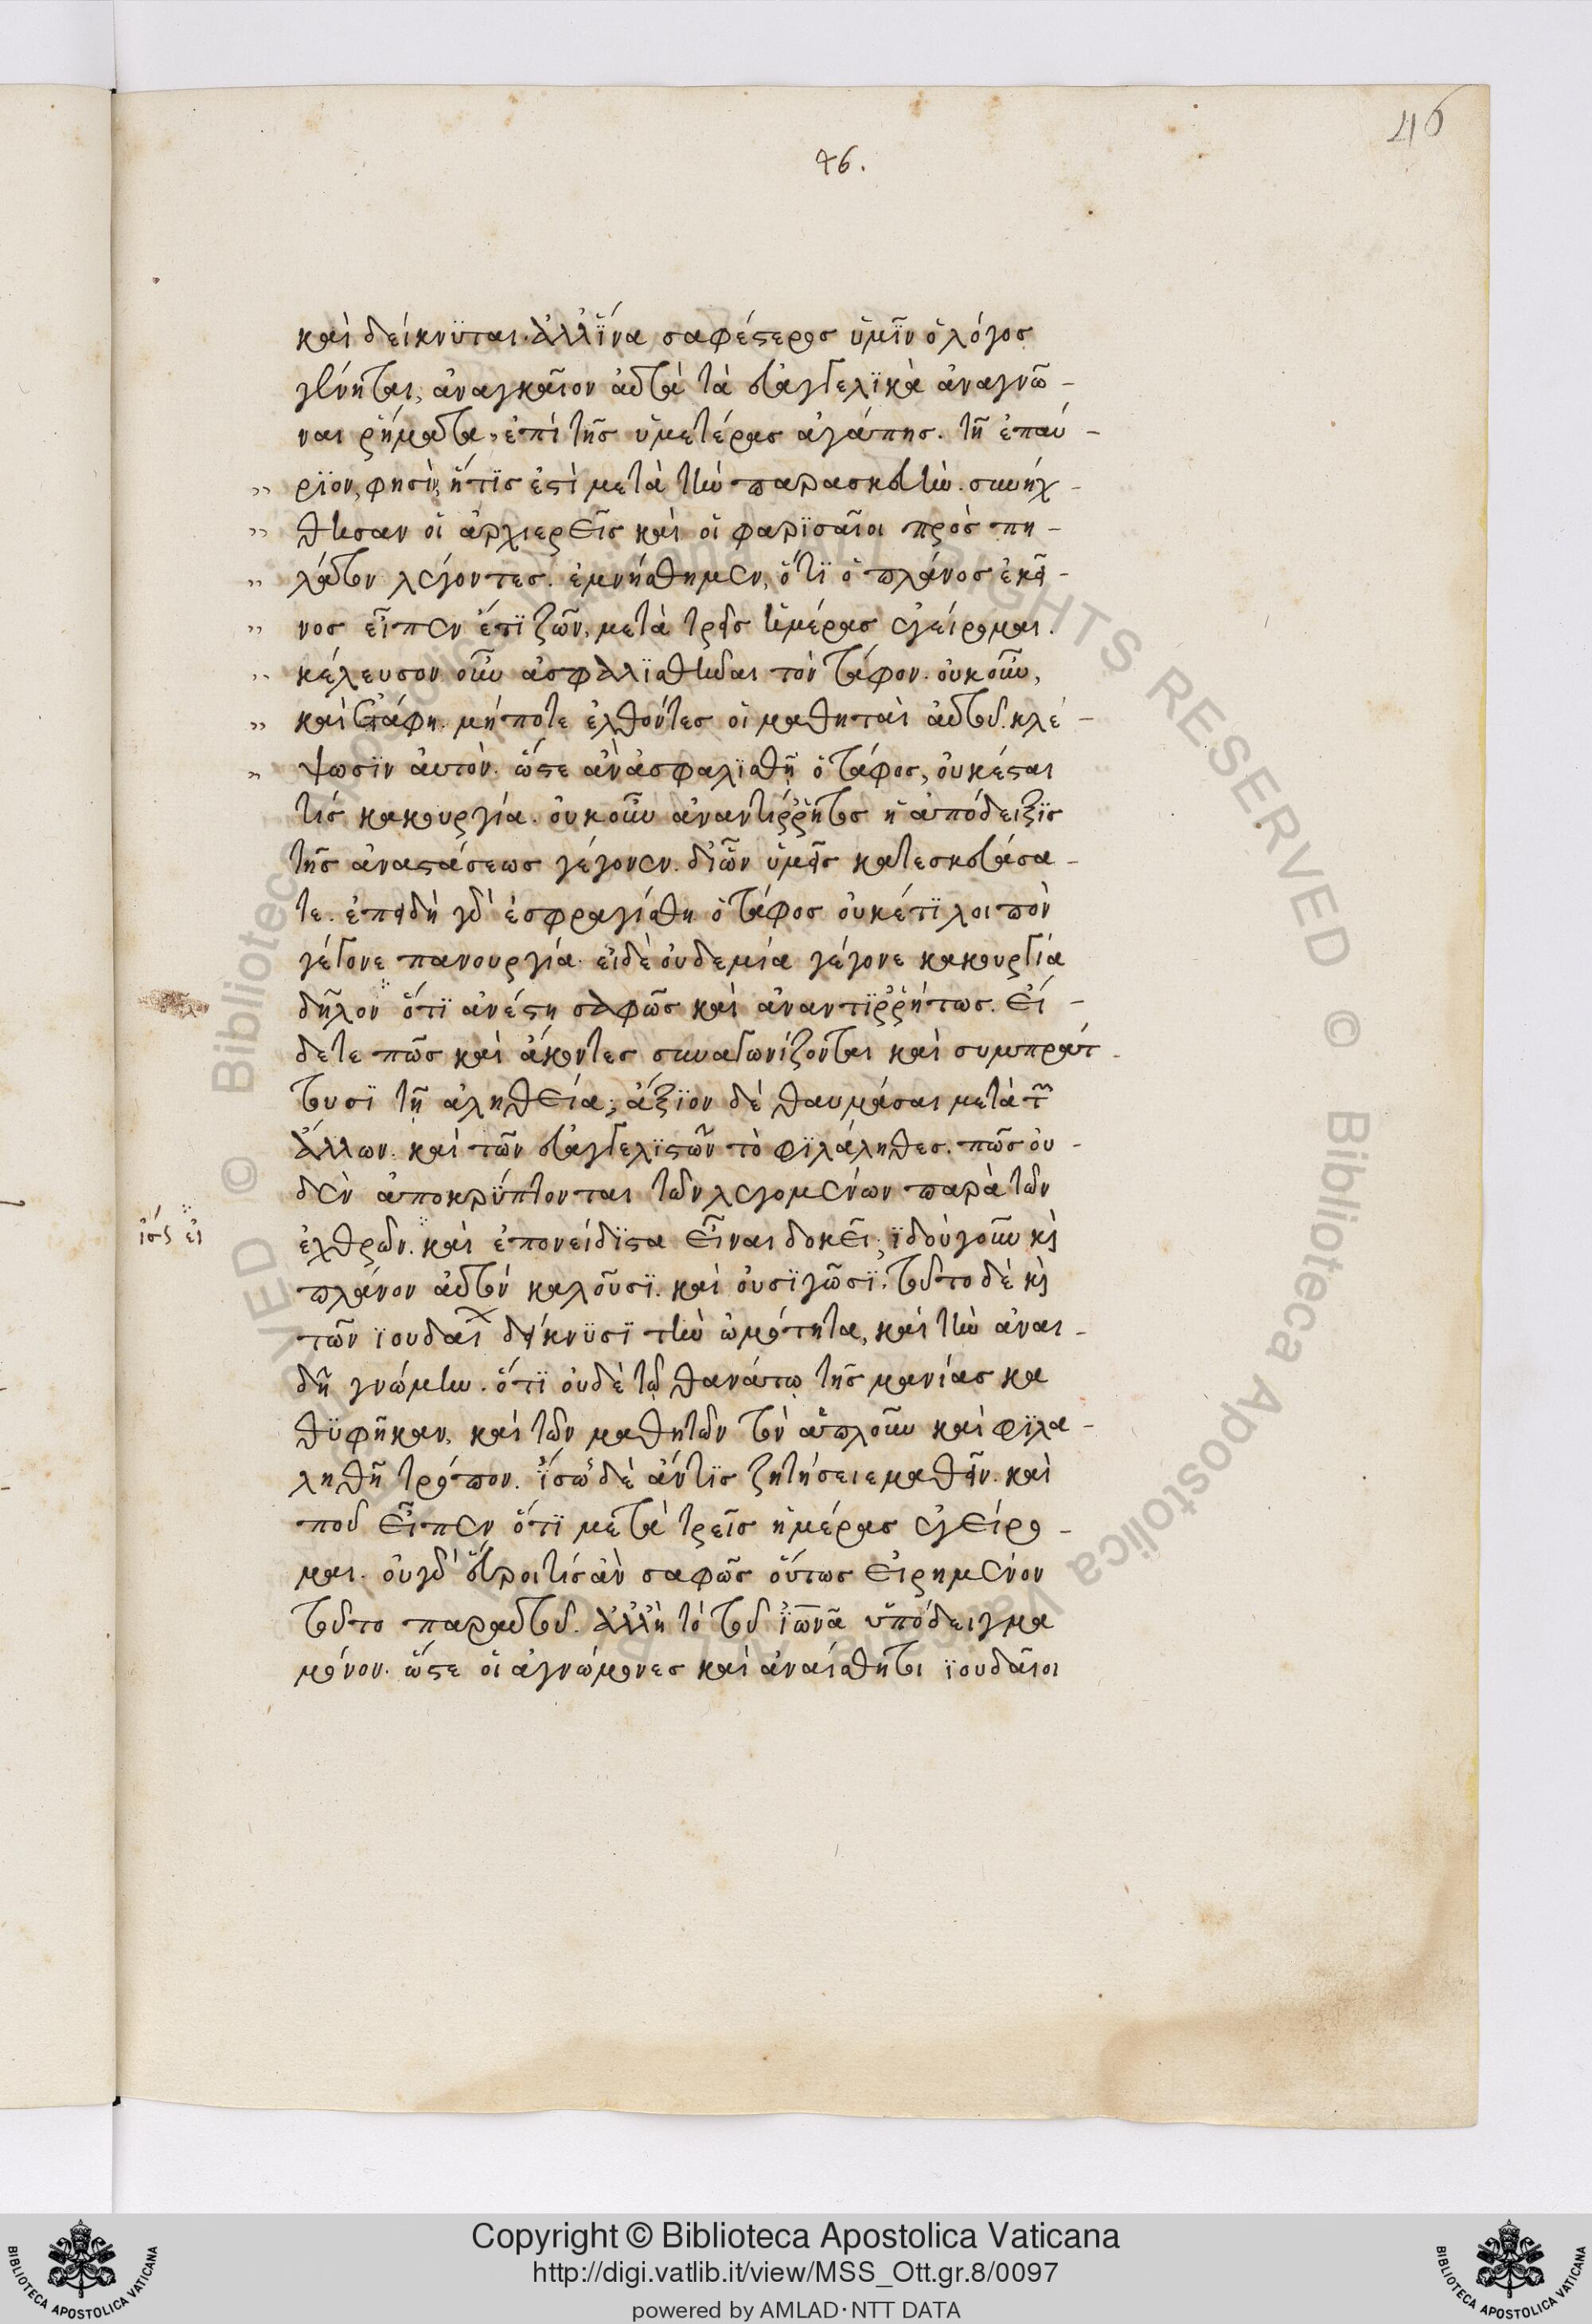 46
46.
καὶ δείκνϋται. ἀλλ' ἵνα σαφέστερος ὑμῖν ὁ λόγος
γένηται, ἀναγκαῖον αὐτὰ τὰ εὐαγγελϊκὰ ἀναγνῶ-
ναι ῥήματα, ἐπὶ τῆς ὑμετέρας ἀγάπης. τῆ ἐπαύ-
ρϊον, φησὶν, ἥτϊς ἐστὶ μετὰ τὴν παρασκευὴν. συνήχ-
θησαν οἱ ἀρχιερεῖς καὶ οἱ φαρϊσαῖοι πρὸς πη-
λάτον λέγοντες. ἐμνήσθημεν, ὅτϊ ὁ πλάνος ἐκεῖ-
νος εἶπεν ἔτϊ ζῶν, μετὰ τρεῖς ἡμέρας ἐγείρομαι.
κέλευσον οὖν ἀσφαλϊσθῆναι τὸν τάφον. οὐκοῦν,
καὶ ἐτάφη. μήποτε ἐλθόντες οἱ μαθηταὶ αὐτοῦ. κλέ-
ψωσϊν αὐτὸν. ὥστε ἂν ἀσφαλϊσθῆ ὁ τάφος, οὐκ ἔσται
τὶς κακουργία. οὐκοῦν ἀναντίρρητος ἡ ἀπόδειξϊς
τῆς ἀναστάσεως γέγονεν. δι' ὧν ὑμεῖς κατεσκευάσα-
τε. ἐπειδὴ γὰρ ἐσφραγίσθη ὁ τάφος οὐκέτϊ λοιπὸν
γέγονε πανουργία. εἰ δὲ οὐδεμία γέγονε κακουργία
δῆλον ὅτϊ ἀνέστη σαφῶς καὶ ἀναντϊρρήτως. εἴ-
δετε πῶς καὶ ἄκοντες συναγωνίζονται καὶ συμπράτ-
τουσϊ τῆ ἀληθεία; ἄξϊον δὲ θαυμάσαι μετὰ τῶν
ἄλλων. καὶ τῶν εὐαγγελϊστῶν τὸ φϊλάληθες. πῶς οὐ-
δὲν ἀποκρύπτονται τῶν λεγομένων παρὰ τῶν
ἰσ ϛ εἰ
ἐχθρῶν. καὶ ἐπονείδϊστα εἶναι δοκεῖ; ἰδοὺ γοῦν καὶ
πλάνον αὐτὸν καλοῦσϊ. καὶ οὐ σϊγῶσϊ. τοῦτο δὲ καὶ
τῶν ϊουδαίων δείκνϋσϊ τὴν ὠμότητα, καὶ τὴν ἀναι-
δῆ γνώμην. ὅτϊ οὐδὲ τῶ θανάτω τῆς μανίας κα
θϋφῆκαν, καὶ τῶν μαθητῶν τὸν ἁπλοῦν καὶ φϊλα-
ληθῆ τρόπον. ἴσως δὲ ἄν τϊς ζητήσειε μαθεῖν. καὶ
ποῦ εἶπεν ὅτϊ μετὰ τρεῖς ἡμέρας ἐγείρο-
μαι. οὐ γὰρ εὕροι τὶς ἂν σαφῶς οὕτως εἰρημένον
τοῦτο παρ' αὐτοῦ. ἀλλ' ἢ τὸ τοῦ ἰωνᾶ ὑπόδειγμα
μόνον. ὥστε οἱ ἀγνώμονες καὶ ἀναίσθητοι ϊουδαῖοι
Copyright © Biblioteca Apostolica Vaticana
http://digi.vatlib.it/view/MSS_Ott.gr.8/0097
powered by AMLAD·NTT DATA